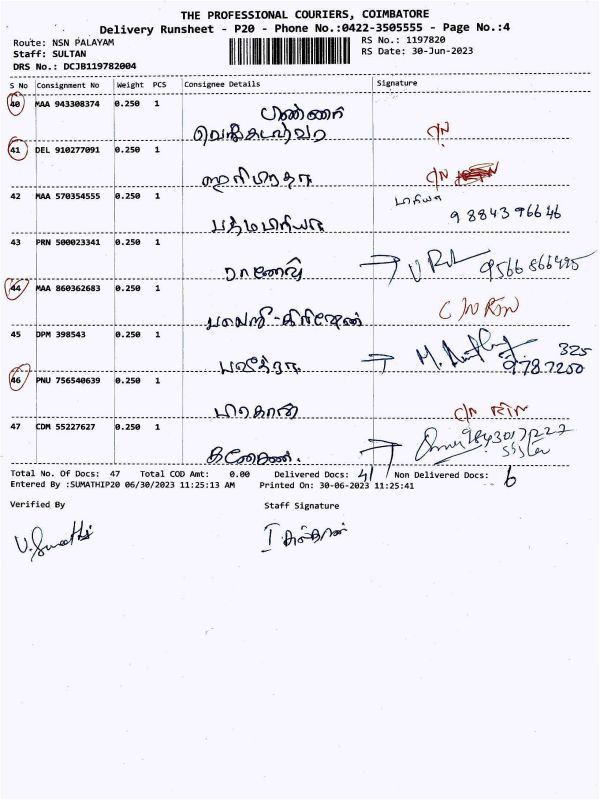 THE PROFESSIONAL COURIERS, COIMBATORE
Delivery Runsheet - P20 - Phone No.:0422-3505555 - Page No.:4
Route: NSN PALAYAM
Staff: SULTAN
DRS No.: DCJB119782004
RS No.: 1197820
RS Date: 30-Jun-2023
S No Consignment No Weight PCS Consignee Details Signature
40 MAA 943308374 0.250 1
C/N
41 DEL 910277091 0.250 1
C/N
42 MAA 570354555 0.250 1
பத்மபிரியா 9884396646
43 PRN 500023341 0.250 1
9566866495
44 MAA 860362683 0.250 1
45 DPM 398543 0.250 1
325
46 PNU 756540639 0.250 1
C/N
47 CDM 55227627 0.250 1
கணேசன்.
Total No. Of Docs: 47 Total COD Amt: 0.00 Delivered Docs: 41 Non Delivered Docs: 6
Entered By :SUMATHIP20 06/30/2023 11:25:13 AM Printed On: 30-06-2023 11:25:41
Verified By Staff Signature
V. Sumathi